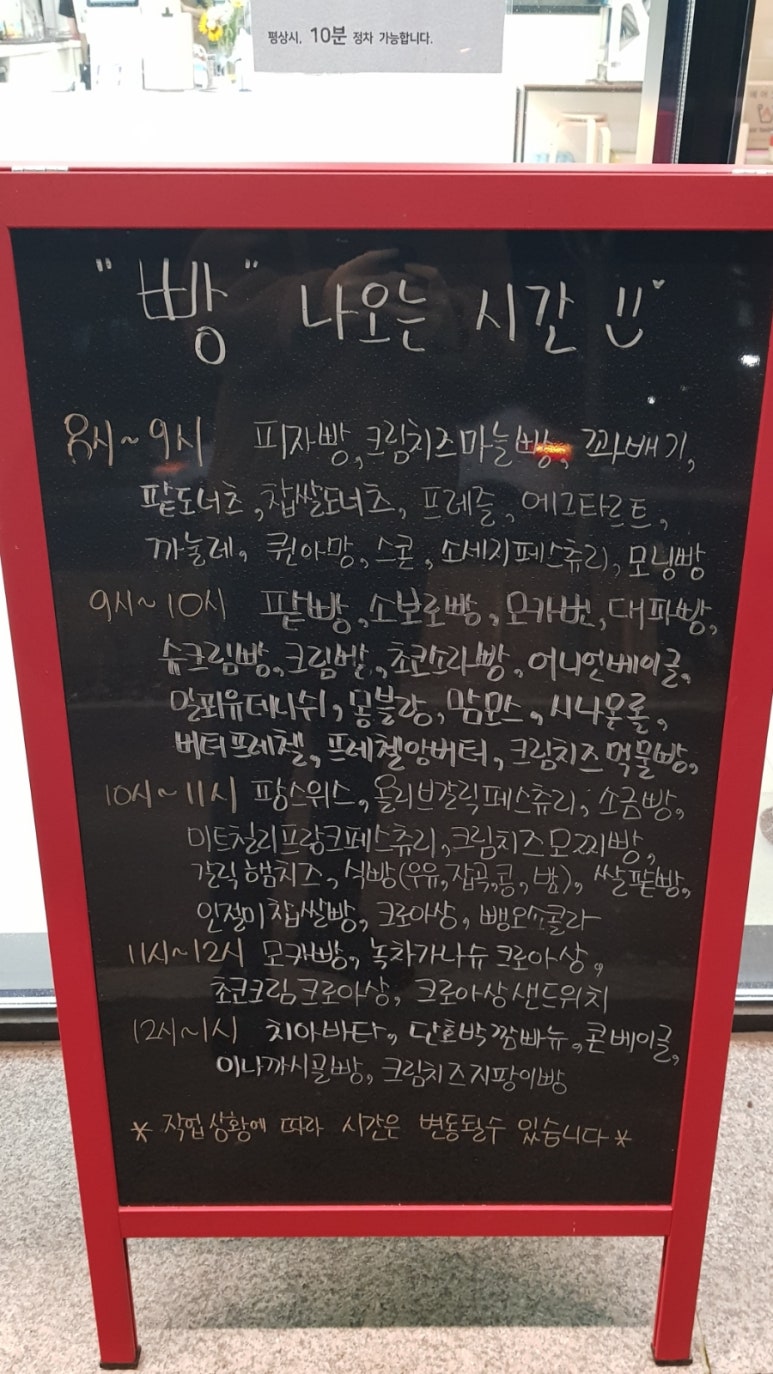 평상시, 10분 정차 가능합니다.
"빵" 나오는 시간 !!
8시~9시 피자빵, 크림치즈마늘빵, 꽈배기,
팥도너츠, 찹쌀도너츠, 프레즐, 에그타르트,
까눌레, 퀸아망, 스콘, 소세지페스츄리, 모닝빵
9시~10시 팥빵, 소보로빵, 모카번, 대파빵,
슈크림빵, 크림번, 초코소라빵, 어니언베이글,
밀푀유데니쉬, 몽블랑, 맘모스, 시나몬롤,
버터프레첼, 프레첼앙버터, 크림치즈먹물빵,
10시~11시 팡스위스, 올리브갈릭페스츄리, 소금빵,
미트칠리프랑크페스츄리, 크림치즈모찌빵,
갈릭햄치즈, 식빵(우유,잡곡,콩,밤), 쌀팥빵,
인절미찹쌀빵, 크로아상, 뺑오쇼콜라
11시~12시 모카빵, 녹차가나슈 크로아상,
초코크림크로아상, 크로아상샌드위치
12시~1시 치아바타, 단호박깜빠뉴, 콘베이글,
이나까시골빵, 크림치즈지팡이빵
* 작업상황에 따라 시간은 변동될수 있습니다 *